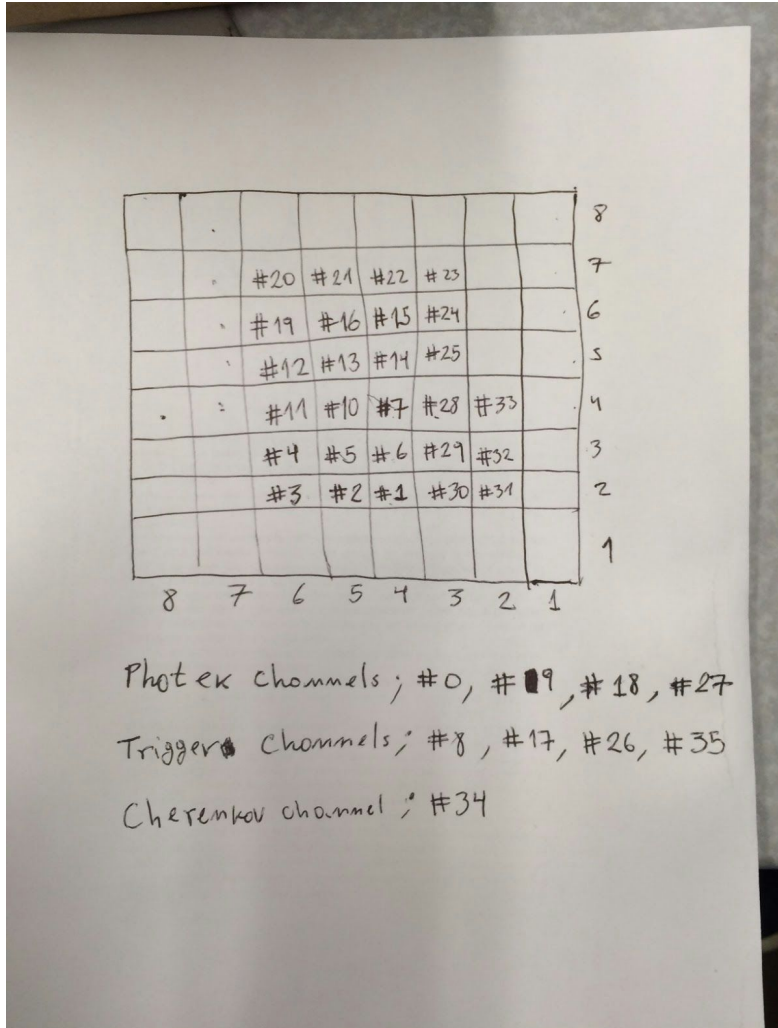 8
#20 #21 #22 #23 7
#19 #16 #15 #24 6
#12 #13 #14 #25 5
#11 #10 #7 #28 #33 4
#4 #5 #6 #29 #32 3
#3 #2 #1 #30 #31 2
1
8 7 6 5 4 3 2 1
Photek Channels; #0, #9, #18, #27
Trigger Channels; #8, #17, #26, #35
Cherenkov channel; #34